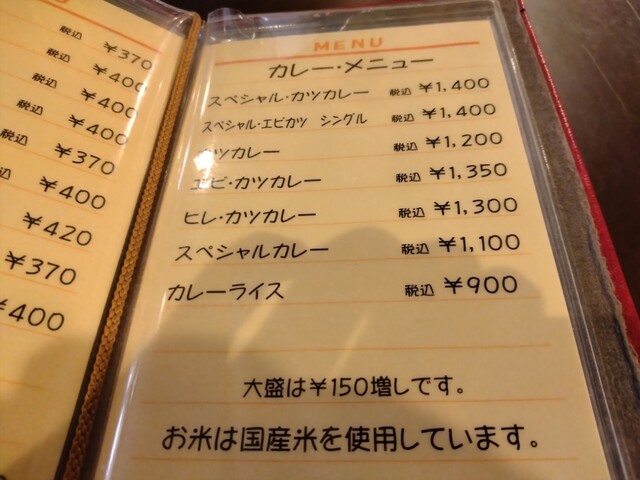 税込 ¥370
税込 ¥400
税込 ¥400
税込 ¥400
税込 ¥370
¥400
¥420
¥370
¥400
MENU
カレー・メニュー
スペシャル・カツカレー 税込 ¥1,400
スペシャル・エビカツ シングル 税込 ¥1,400
カツカレー 税込 ¥1,200
エビ・カツカレー 税込 ¥1,350
ヒレ・カツカレー 税込 ¥1,300
スペシャルカレー 税込 ¥1,100
カレーライス 税込 ¥900
大盛は¥150増しです。
お米は国産米を使用しています。